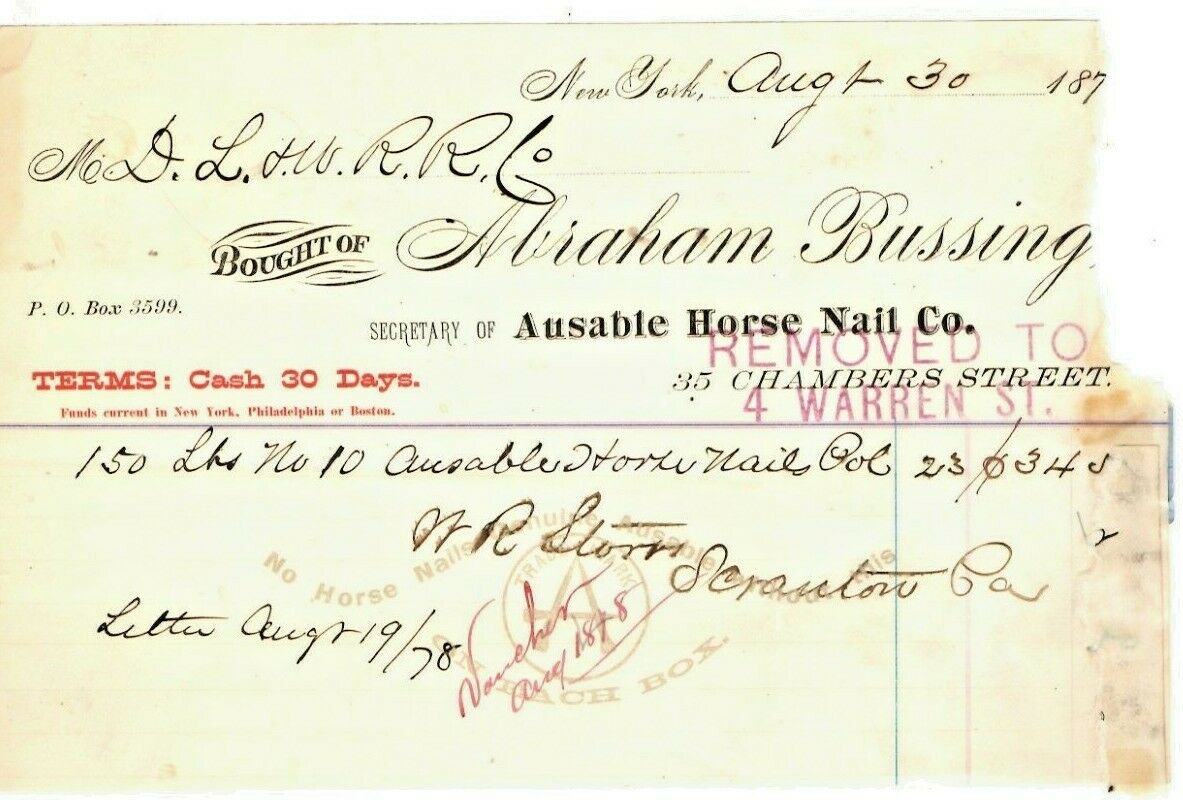 New York, Augt 30 187
M D. L. & W. R. R. Co
BOUGHT OF Abraham Bussing
P. O. Box 3599.
SECRETARY OF Ausable Horse Nail Co.
REMOVED TO
TERMS: Cash 30 Days.
35 CHAMBERS STREET.
4 WARREN ST.
Funds current in New York, Philadelphia or Boston.
150 Lbs No 10 Ausable Horse Nails Pol 23 ¢ 34
W R Storrs
Scranton Pa
No Horse Nails Genuine Ausable without this
TRADE MARK
A
ON EACH BOX.
Letter Augt 19/78
Voucher
Aug 1878